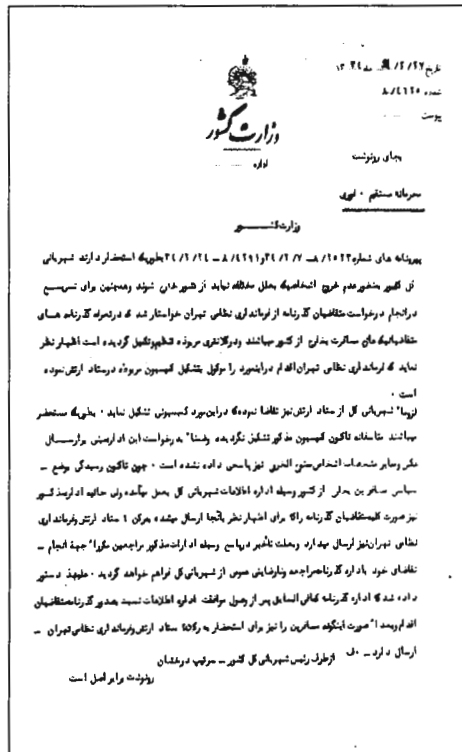 تاریخ ۲۷/۲/ ماه ۱۳۳۴
شماره ۸/۴۱۲۵
پیوست
وزارت کشور
اداره
بجای رونوشت
محرمانه مستقیم . فوری
وزارت کشور
پیرو نامه های شماره ۲۵۲۳/۸ – ۳۴/۲/۷ و ۸/۴۲۹۱ – ۳۴/۲/۲۴ بطوریکه استحضار دارند شهربانی
کل کشور بمنظور عدم خروج اشخاصیکه بعلل مختلفه نباید از کشور خارج شوند و همچنین برای تسریع
در انجام درخواست متقاضیان گذرنامه از فرمانداری نظامی تهران خواستار شد که در تعرفه گذرنامه های
متقاضیانیکه عازم مسافرت بخارج از کشور میباشند و در کلانتری مربوطه تنظیم و تکمیل گردیده است اظهار نظر
نماید که فرمانداری نظامی تهران اقدام در اینمورد را موکول بتشکیل کمیسیون مربوطه در ستاد ارتش نموده
است .
لزوما" شهربانی کل از ستاد ارتش نیز تقاضا نموده که در این مورد کمیسیونی تشکیل نماید . بطوریکه مستحضر
میباشند متاسفانه تاکنون کمیسیون مذکور تشکیل نگردیده وضمنا" به درخواست این اداره مبنی بر ارسال
عکس و سایر مشخصات اشخاص ممنوع الخروج نیز پاسخی داده نشده است . چون تاکنون رسیدگی بوضع –
سیاسی مسافرین بخارج از کشور وسیله اداره اطلاعات شهربانی کل بعمل میآمده ولی حالیه اداره مذکور
نیز صورت کلیه متقاضیان گذرنامه راکه برای اظهار نظر بآنجا ارسال میشده برکن ۲ ستاد ارتش و فرمانداری
نظامی تهران نیز ارسال میدارد و بعلت تأخیر در پاسخ وسیله ادارات مذکور مراجعین مکررا" جهة انجام –
تقاضای خود باداره گذرنامه مراجعه و نارضایتی عمومی از شهربانی کل فراهم خواهد گردید . علیهذا دستور
داده شد که اداره گذرنامه کمافی السابق پس از وصول موافقت اداره اطلاعات نسبت بصدور گذرنامه متقاضیان
اقدام و بعدا" صورت اینگونه مسافرین را نیز برای استحضار به رکن ۲ ستاد ارتش و فرمانداری نظامی تهران –
ارسال دارد –
از طرف رئیس شهربانی کل کشور – سرتیپ درخشان
رونوشت برابر اصل است